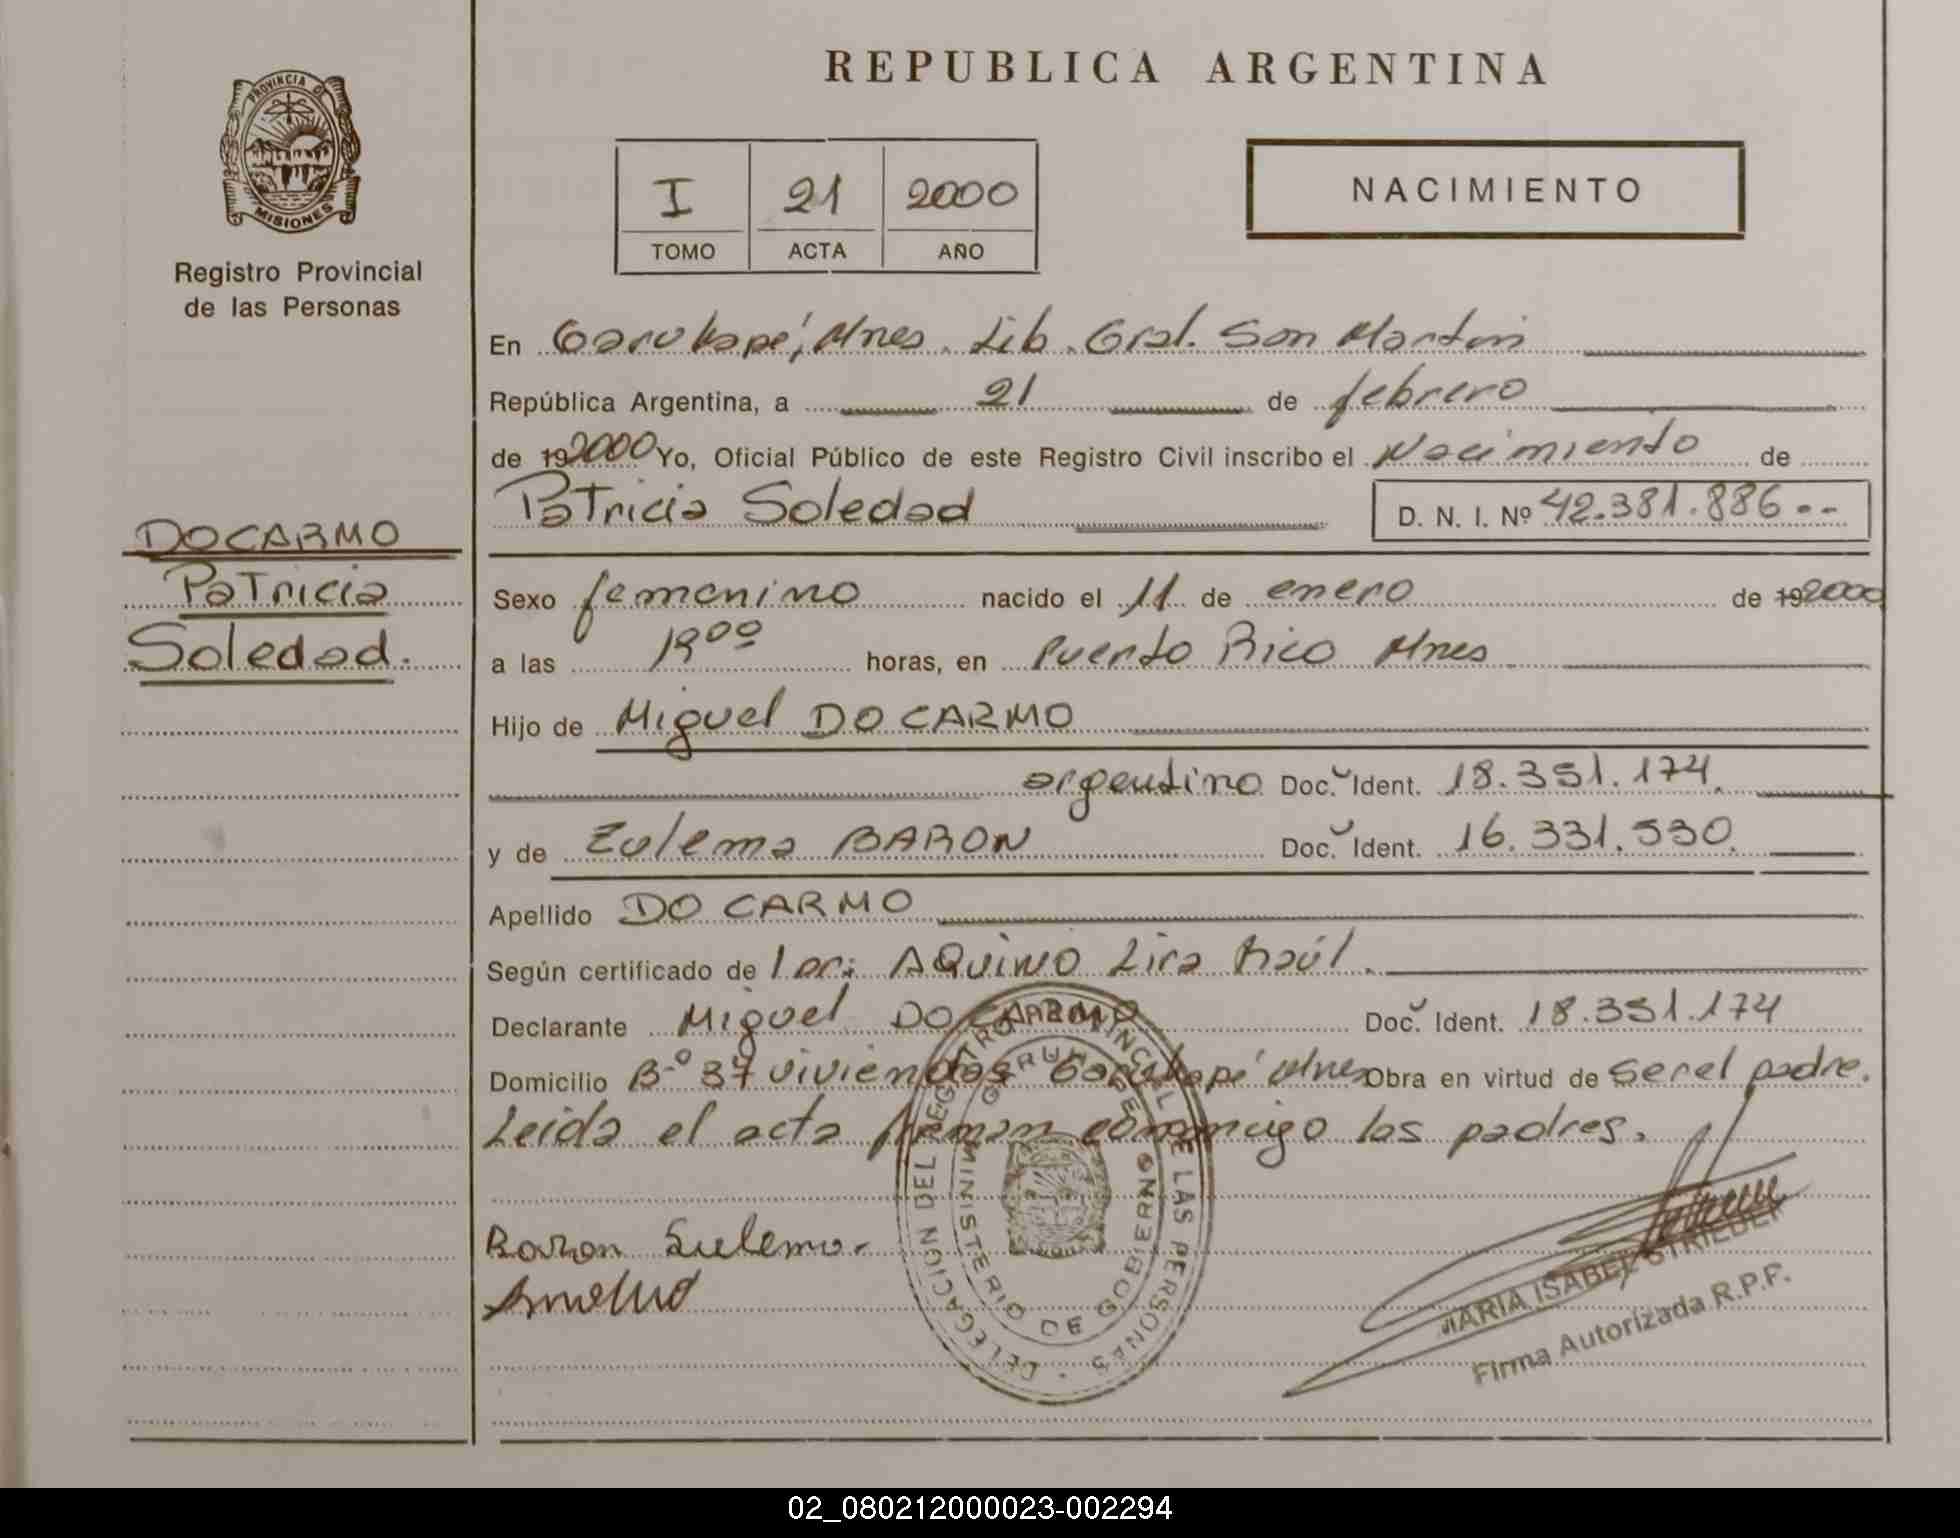 REPUBLICA ARGENTINA
PROVINCIA DE
MISIONES
Registro Provincial
de las Personas
I 21 2000
TOMO ACTA AÑO
NACIMIENTO
En Garuhapé, Mnes. Lib. Gral. San Martín
República Argentina, a 21 de febrero
de 192000 Yo, Oficial Público de este Registro Civil inscribo el Nacimiento de
Patricia Soledad D. N. I. Nº 42.381.886--
DOCARMO
Patricia
Soledad.
Sexo femenino nacido el 11 de enero de 192000
a las 19⁰⁰ horas, en Puerto Rico Mnes
Hijo de Miguel DO CARMO
argentino Doc. Ident. 18.351.174.
y de Zulema BARON Doc. Ident. 16.331.530.
Apellido DO CARMO
Según certificado de AQUINO Lira Raúl.
Declarante Miguel DO CARMO Doc. Ident. 18.351.174
Domicilio B-º 37 viviendas Garuhapé Mnes Obra en virtud de ser el padre.
Leida el acta firman conmigo los padres.
Baron Sulema.
DELEGACION DEL REGISTRO PROVINCIAL DE LAS PERSONAS
GARUHAPE
MINISTERIO DE GOBIERNO
MARIA ISABEL STRIEDER
Firma Autorizada R.P.P.
02_080212000023-002294